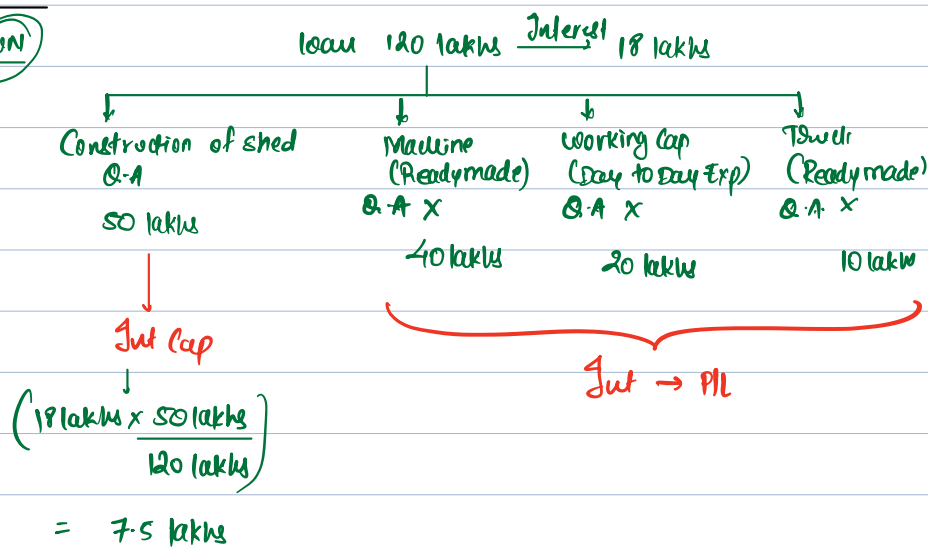 loan 120 lakhs Interest 18 lakhs
Construction of shed
Q.A
50 lakhs
Machine
(Readymade)
Q.A X
40 lakhs
Working Cap
(Day to Day Exp)
Q.A X
20 lakhs
(Readymade)
Q.A. X
10 lakhs
Int Cap
Int → P/L
(18 lakhs x 50 lakhs
120 lakhs)
= 7.5 lakhs